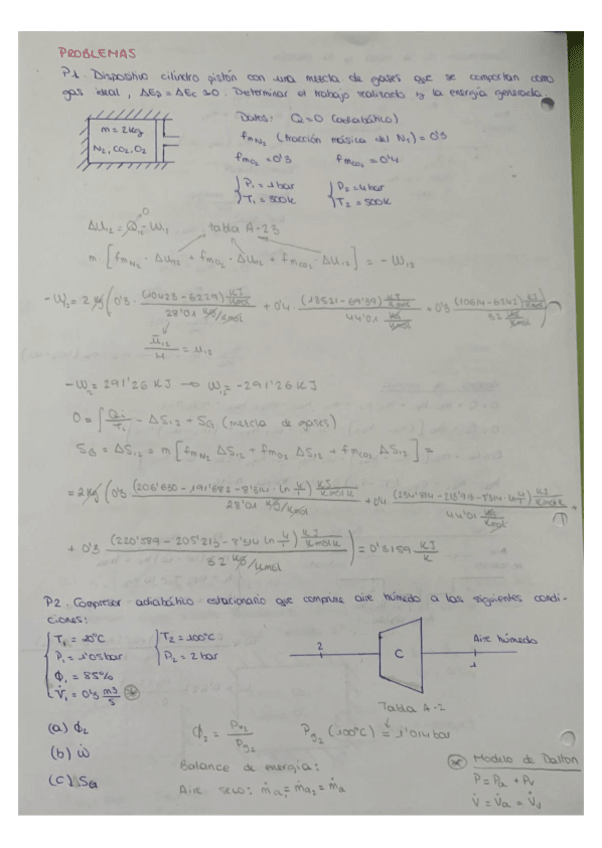 PROBLEMAS
P1. Dispositivo cilindro pistón con una mezcla de gases que se comportan como
gas ideal, ΔEp = ΔEc = 0. Determinar el trabajo realizado y la energía generada.
Datos: Q=0 (adiabático)
m = 2kg
N2, CO2, O2
fmN2 (fracción másica del N2) = 0'3
fmO2 = 0'3 fmCO2 = 0'4
P1 = 1 bar P2 = 4 bar
T1 = 300K T2 = 500K
ΔU12 = Q12 - W12 tabla A-23
0
m · [fmN2 · Δu12 + fmO2 · Δu12 + fmCO2 · Δu12] = - W12
-W12 = 2 kg (0'3 · (10423 - 6229) KJ/Kmol / 28'01 kg/Kmol + 0'4 · (13521 - 6939) KJ/Kmol / 44'01 kg/Kmol + 0'3 (10614 - 6242) KJ/Kmol / 32 kg/Kmol)
ū12 / M = u12
-W12 = 291'26 KJ → W12 = -291'26 KJ
0 = ∫ Qi/Ti - ΔS12 + SG (mezcla de gases)
SG = ΔS12 = m [fmN2 ΔS12 + fmO2 ΔS12 + fmCO2 ΔS12] =
= 2 kg (0'3 · (206'630 - 191'682 - 8'314 · ln 4/1) KJ/Kmol K / 28'01 kg/Kmol + 0'4 (234'814 - 213'915 - 8'314 · ln 4/1) KJ/Kmol K / 44'01 kg/Kmol +
+ 0'3 (220'589 - 205'213 - 8'314 ln 4/1) KJ/Kmol K / 32 kg/Kmol) = 0'3159 KJ/K
P2. Compresor adiabático estacionario que comprime aire húmedo a las siguientes condi-
ciones:
T1 = 20°C T2 = 100°C
P1 = 1'05 bar P2 = 2 bar
Φ1 = 85%
V̇1 = 0'3 m3/s *
2 C 1 Aire húmedo
Tabla A-2
(a) Φ2 Φ2 = Pv2 / Pg2 Pg2 (100°C) = 1'014 bar
(b) ẇ Balance de energía: * Modelo de Dalton
(c) SG Aire seco: ṁa1 = ṁa2 = ṁa P = Pa + Pv
V̇ = V̇a = V̇v